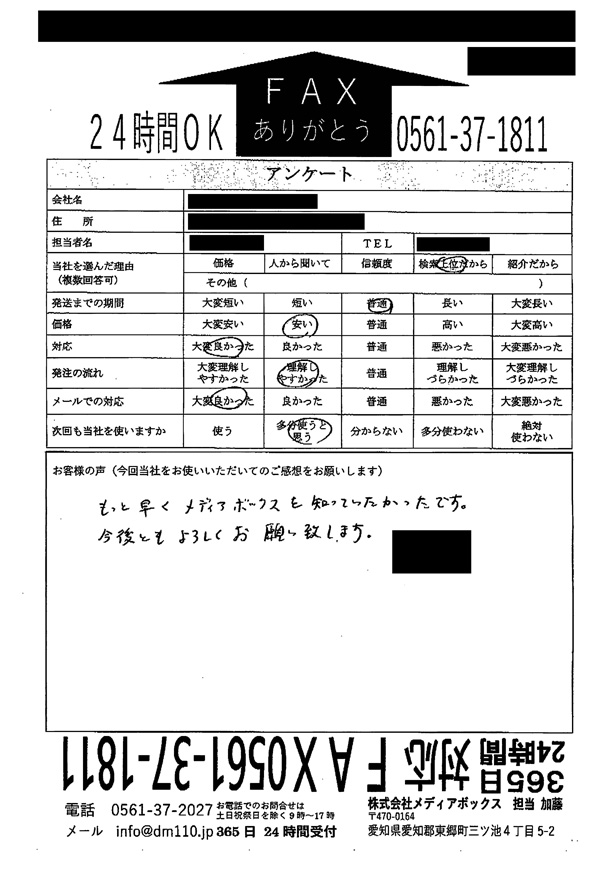 FAX
ありがとう
24時間OK
0561-37-1811
アンケート
会社名
住 所
担当者名 TEL
当社を選んだ理由（複数回答可） 価格 人から聞いて 信頼度 検索上位だから 紹介だから
その他（ ）
発送までの期間 大変短い 短い 普通 長い 大変長い
価格 大変安い 安い 普通 高い 大変高い
対応 大変良かった 良かった 普通 悪かった 大変悪かった
発注の流れ 大変理解しやすかった 理解しやすかった 普通 理解しづらかった 大変理解しづらかった
メールでの対応 大変良かった 良かった 普通 悪かった 大変悪かった
次回も当社を使いますか 使う 多分使うと思う 分からない 多分使わない 絶対使わない
お客様の声（今回当社をお使いいただいてのご感想をお願いします）
もっと早くメディアボックスを知っていたかったです。
今後ともよろしくお願い致します。
365日24時間対応 FAX0561-37-1811
電話 0561-37-2027 お電話でのお問合せは土日祝祭日を除く9時～17時
メール info@dm110.jp 365日 24時間受付
株式会社メディアボックス 担当 加藤
〒470-0164
愛知県愛知郡東郷町三ツ池4丁目5-2